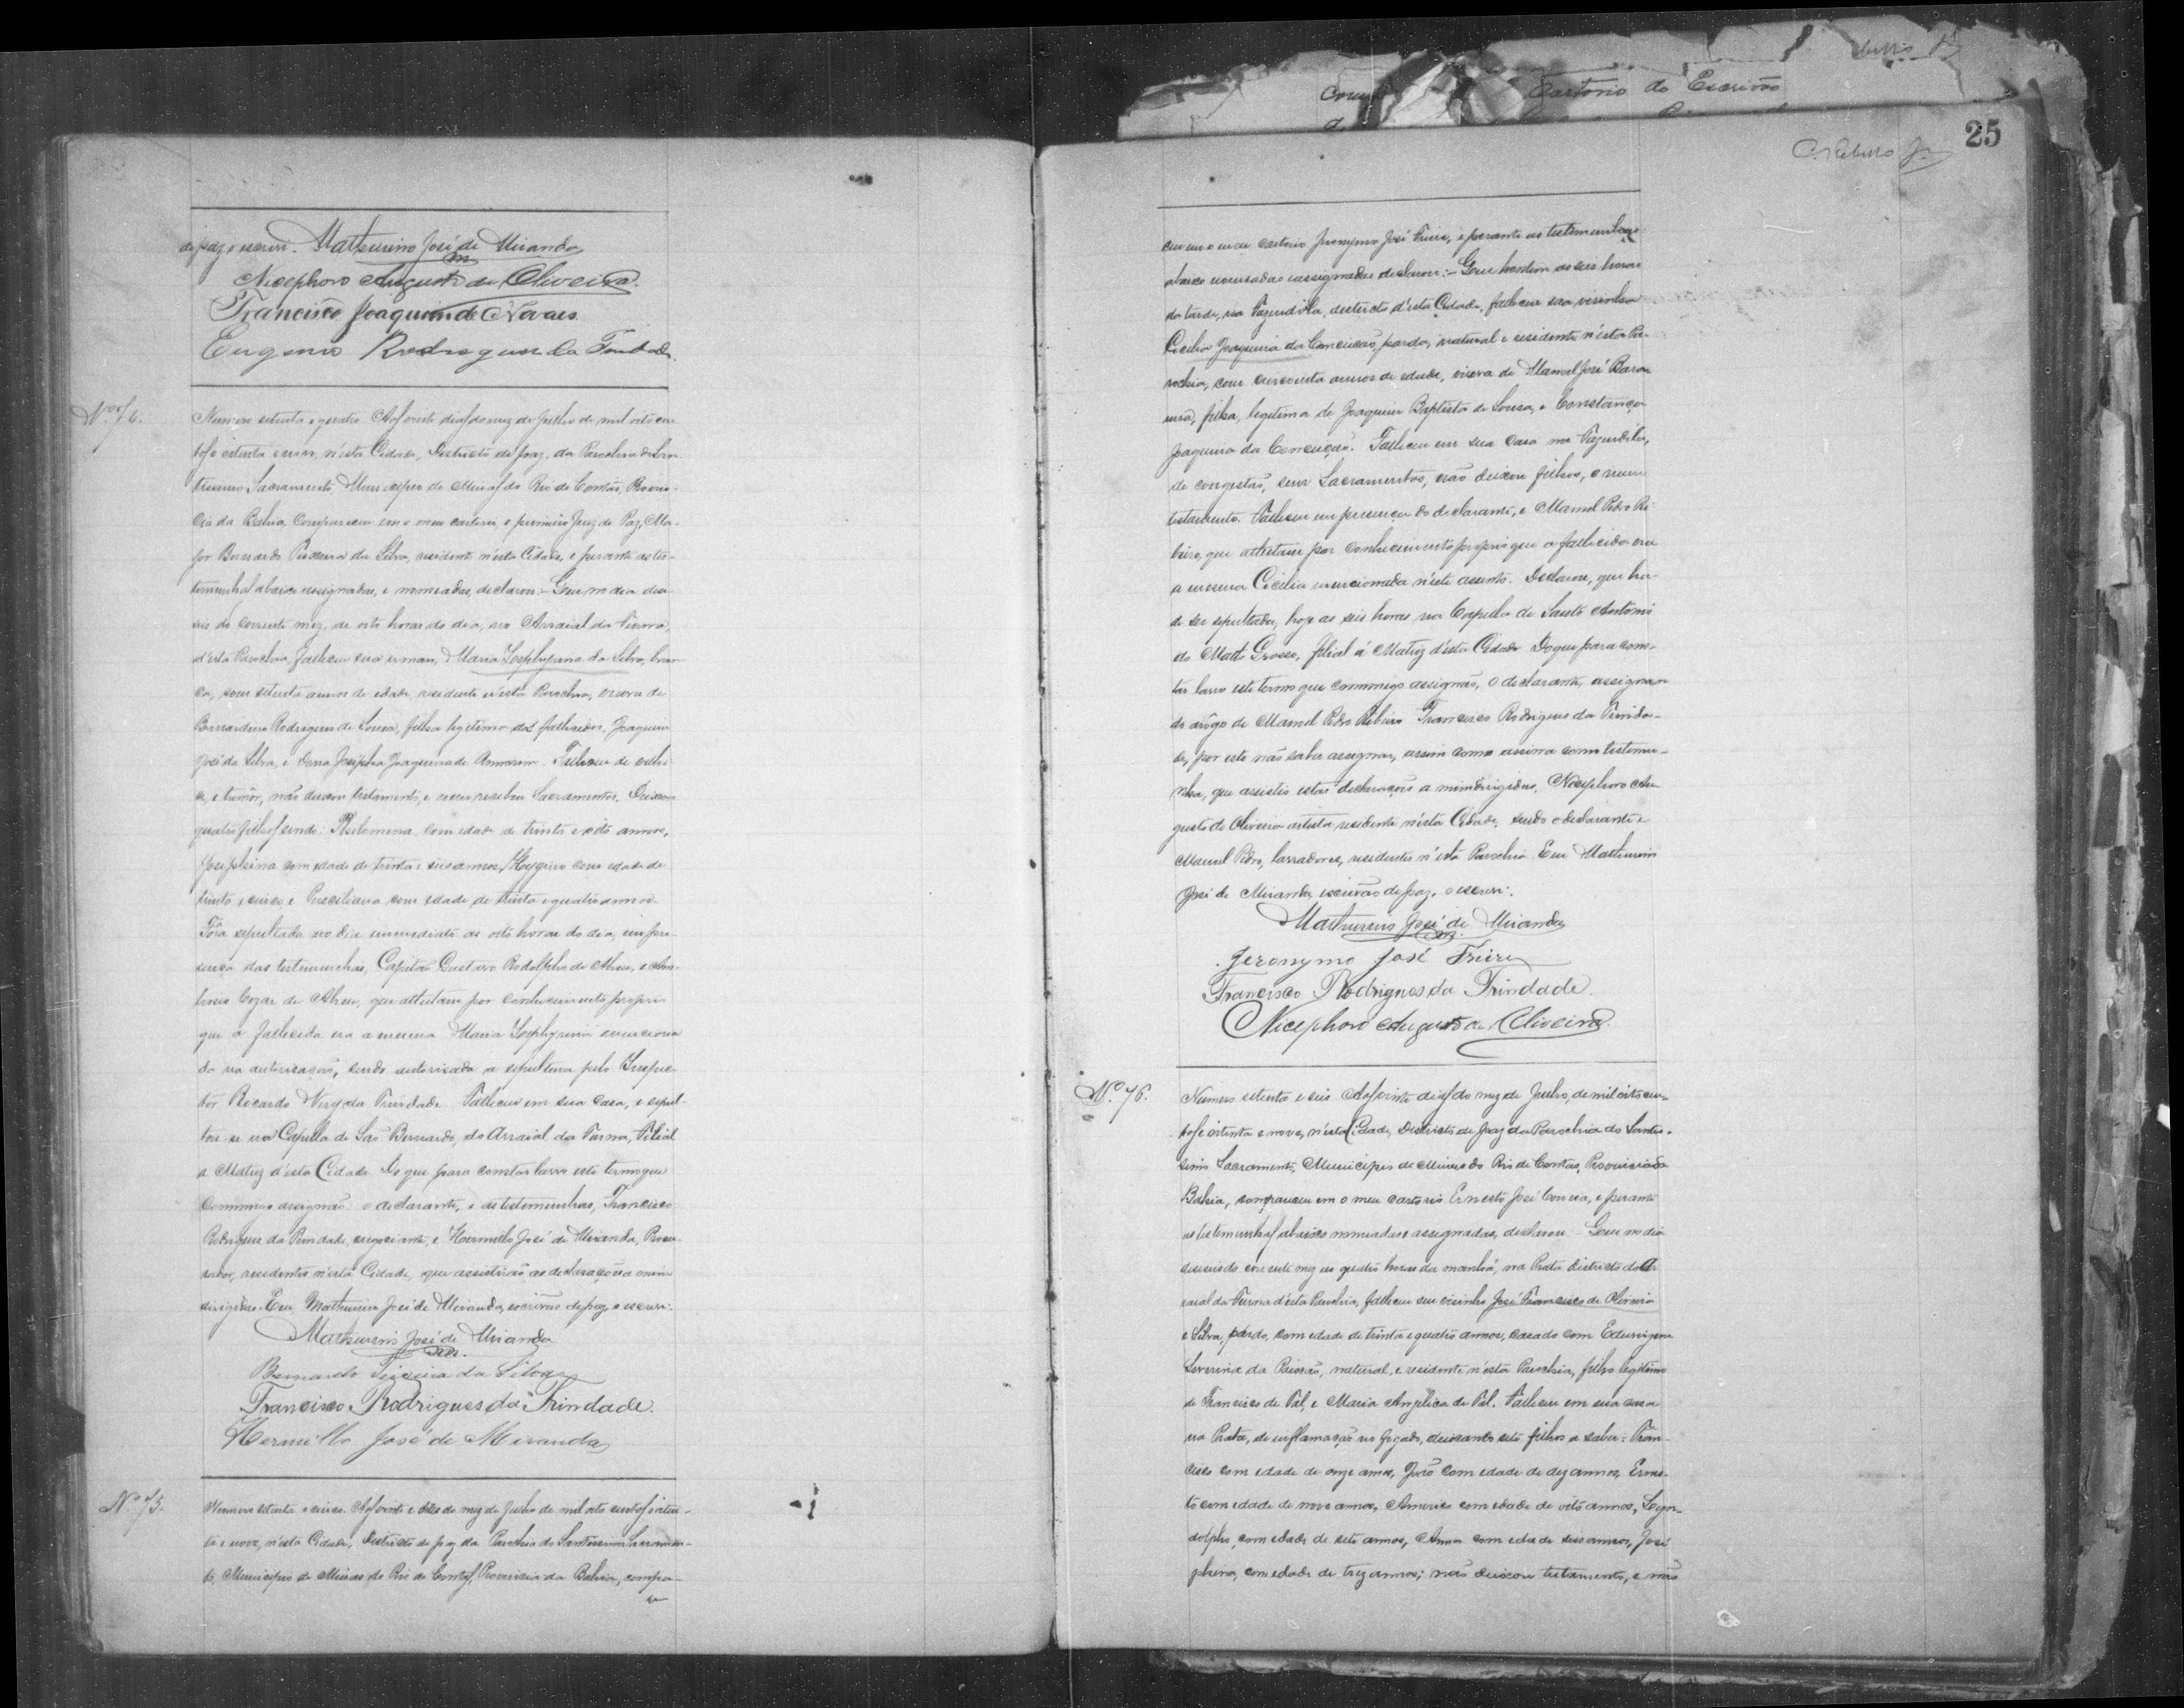 de paz o escrevi. Mathurino José de Miranda
Nicephoro Augusto de Oliveira.
Francisco Joaquim de Novaes.
Eugenio Rodrigues da Trindade.
Nº 74.
Numero setenta e quatro. Aos vinte dias do mez de Julho de mil oito cen-
tos e oitenta e nove, n'esta Cidade, Districto de paz, da Parochia do San-
tissimo Sacramento, Municipio de Minas do Rio de Contas, Provin-
cia da Bahia, compareceu em o meu cartorio, o primeiro Juiz de Paz, Ma-
jor Bernardo Teixeira da Silva, residente n'esta Cidade, e perante as tes-
temunhas abaixo assignadas, e nomeadas, declarou: - Que no dia deze-
seis do corrente mez, de oito horas do dia, no Arraial da Furna,
d'esta Parochia, falleceu sua irman, Maria Zephyrina da Silva, bran-
ca, com setenta annos de edade, residente n'esta Parochia, viuva de
Bernardino Rodrigues de Sousa, filha legitima dos fallecidos, Joaquim
José da Silva, e Dona Josepha Joaquina de Amorim. Falleceu de
e tumôr, não deixou testamento, e nem recebeu Sacramentos. Deixou
quatro filhos sendo: Philomena, com edade de trinta e oito annos,
Josephina com edade de trinta e seis annos, Hygino com edade de
trinta e cinco, e Prisciliana com edade de trinta e quatro annos.
Fôra sepultada no dia immediato as oito horas do dia, em pre-
sença das testemunhas, Capitão Gustavo Rodolpho de Abreu, e An-
tonio Cezar de Abreu, que attestam por conhecimento proprio
que a fallecida era a mesma Maria Zephyrina menciona-
da na autorisação, sendo autorisada a sepultura pelo Inspec-
tor Ricardo da Trindade. Falleceu em sua casa, e sepul-
tou-se na Capella de São Bernardo, do Arraial da Furna, Filial
a Matriz d'esta Cidade. Do que para constar lavro este termo que
commigo assignão o declarante, e as testemunhas, Francisco
Rodrigues da Trindade, negociante, e Hermillo José de Miranda, Procu-
rador, residentes n'esta Cidade, que assistirão as declarações a mim
dirigidas. Eu, Mathurino José de Miranda, escrivão de paz, o escrevi.
Mathurino José de Miranda
Bernardo Teixeira da Silva
Francisco Rodrigues da Trindade.
Hermillo José de Miranda
Nº 75.
Numero setenta e cinco. Aos vinte e dias do mez de Julho de mil oito centos e oiten-
ta e nove, n'esta Cidade, Districto de paz da Parochia do Santissimo Sacramen-
to, Municipio de Minas do Rio de Contas, Provincia da Bahia, compa-
25
receu em o meu cartorio Jeronymo José Freire, e perante as testemunhas
abaixo nomeadas e assignadas declarou: - Que hontem as seis horas
da tarde, na Fazendola, districto d'esta Cidade, falleceu sua visinha
Cicilia Joaquina da Conceição, parda, natural e residente n'esta Pa-
rochia, com cincoenta annos de edade, viuva de Manoel José
filha legitima de Joaquim Baptista de Sousa, e Constança
Joaquina da Conceição. Falleceu em sua casa na Fazendola,
de congestão, sem Sacramentos, não deixou filhos, e nem
testamento. Falleceu em presença do declarante, e Manoel Pedro Ri-
beiro, que attestam por conhecimento proprio que a fallecida era
a mesma Cicilia mencionada n'este assento. Declarou, que ha-
de ser sepultada, hoje as seis horas na Capella de Santo Antonio
do Matto Grosso, filial á Matriz d'esta Cidade. Do que para cons-
tar lavro este termo que commigo assignão, o declarante, assignan-
do arôgo de Manoel Pedro Ribeiro Francisco Rodrigues da Trinda-
de, por este não saber assignar, assim como assina como testemu-
nha, que assistio estas declarações a mim dirigidas, Nicephoro Au-
gusto de Oliveira artista, residente n'esta Cidade, sendo o declarante e
Manoel Pedro, lavradores, residentes n'esta Parochia. Eu Mathurino
José de Miranda, escrivão de paz, o escrevi.
Mathurino José de Miranda
Jeronymo José Freire
Francisco Rodrigues da Trindade.
Nicephoro Augusto de Oliveira.
Nº 76.
Numero setenta e seis. Aos vinte dias do mez de Julho, de mil oito cen-
tos e oitenta e nove, n'esta Cidade, Districto de paz da Parochia do Santis-
simo Sacramento, Municipio de Minas do Rio de Contas, Provincia da
Bahia, compareceu em o meu cartorio Ernesto José Correia, e perante
as testemunhas abaixo nomeadas e assignadas, declarou: - Que no dia
deseseis do corrente mez as quatro horas da manhã, na Prata districto do Ar-
raial da Furna d'esta Parochia, falleceu seu visinho José Francisco de Oliveira
e Silva, pardo, com edade de trinta e quatro annos, casado com Eduvirgem
Severina da Paixão, natural, e residente n'esta Parochia, filho legitimo
de Francisco de Tal, e Maria Angelica de Tal. Falleceu em sua casa
na Prata, de inflamação no figado, deixando sete filhos a saber: Fran-
cisco com edade de onze annos, João com edade de dez annos, Ernes-
to com edade de nove annos, America com edade de oito annos,
dolpho, com edade de sete annos, Anna com edade seis annos, José-
phina, com edade de trez annos; não deixou testamento, e não
Cartorio do Escrivão